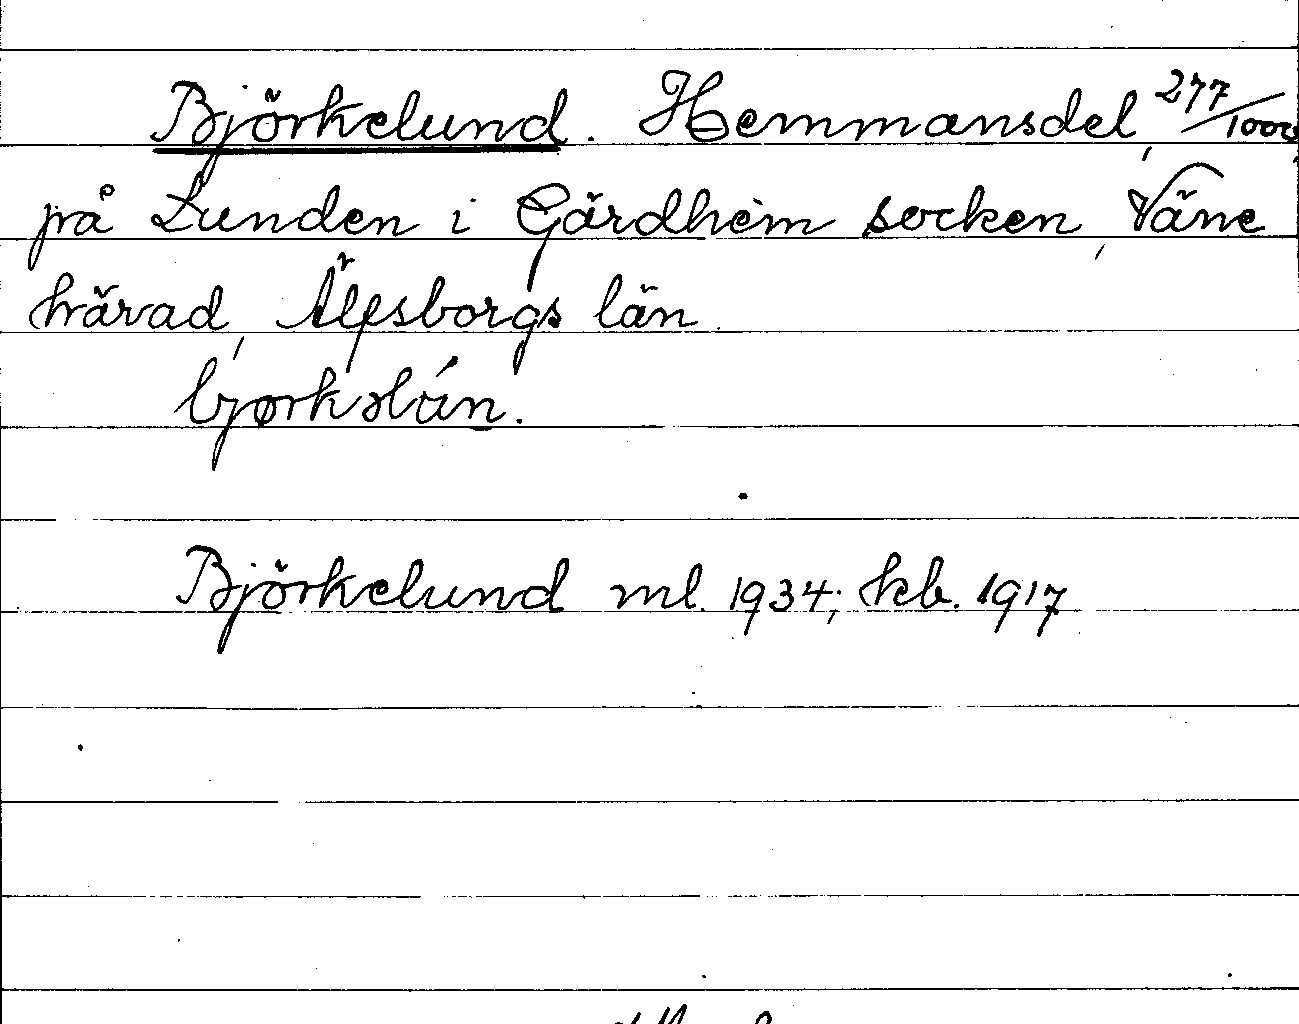 Björkelund. Hemmansdel, 277/1000,
på Lunden i Gärdhem socken, Väne
härad, Älfsborgs län.
Björkelund ml. 1934; kb. 1917